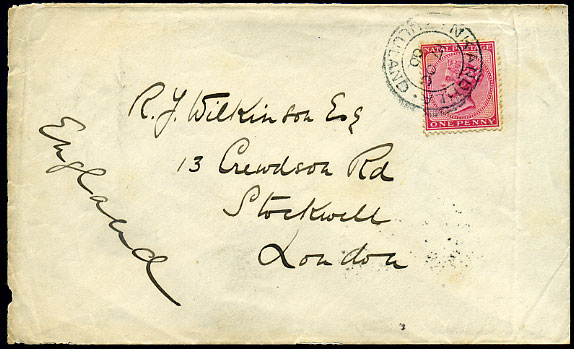 NATAL POSTAGE
ONE PENNY
NKANDHLA ZULULAND
R. J. Wilkinson Esq
13 Crewdson Rd
Stockwell
London
England